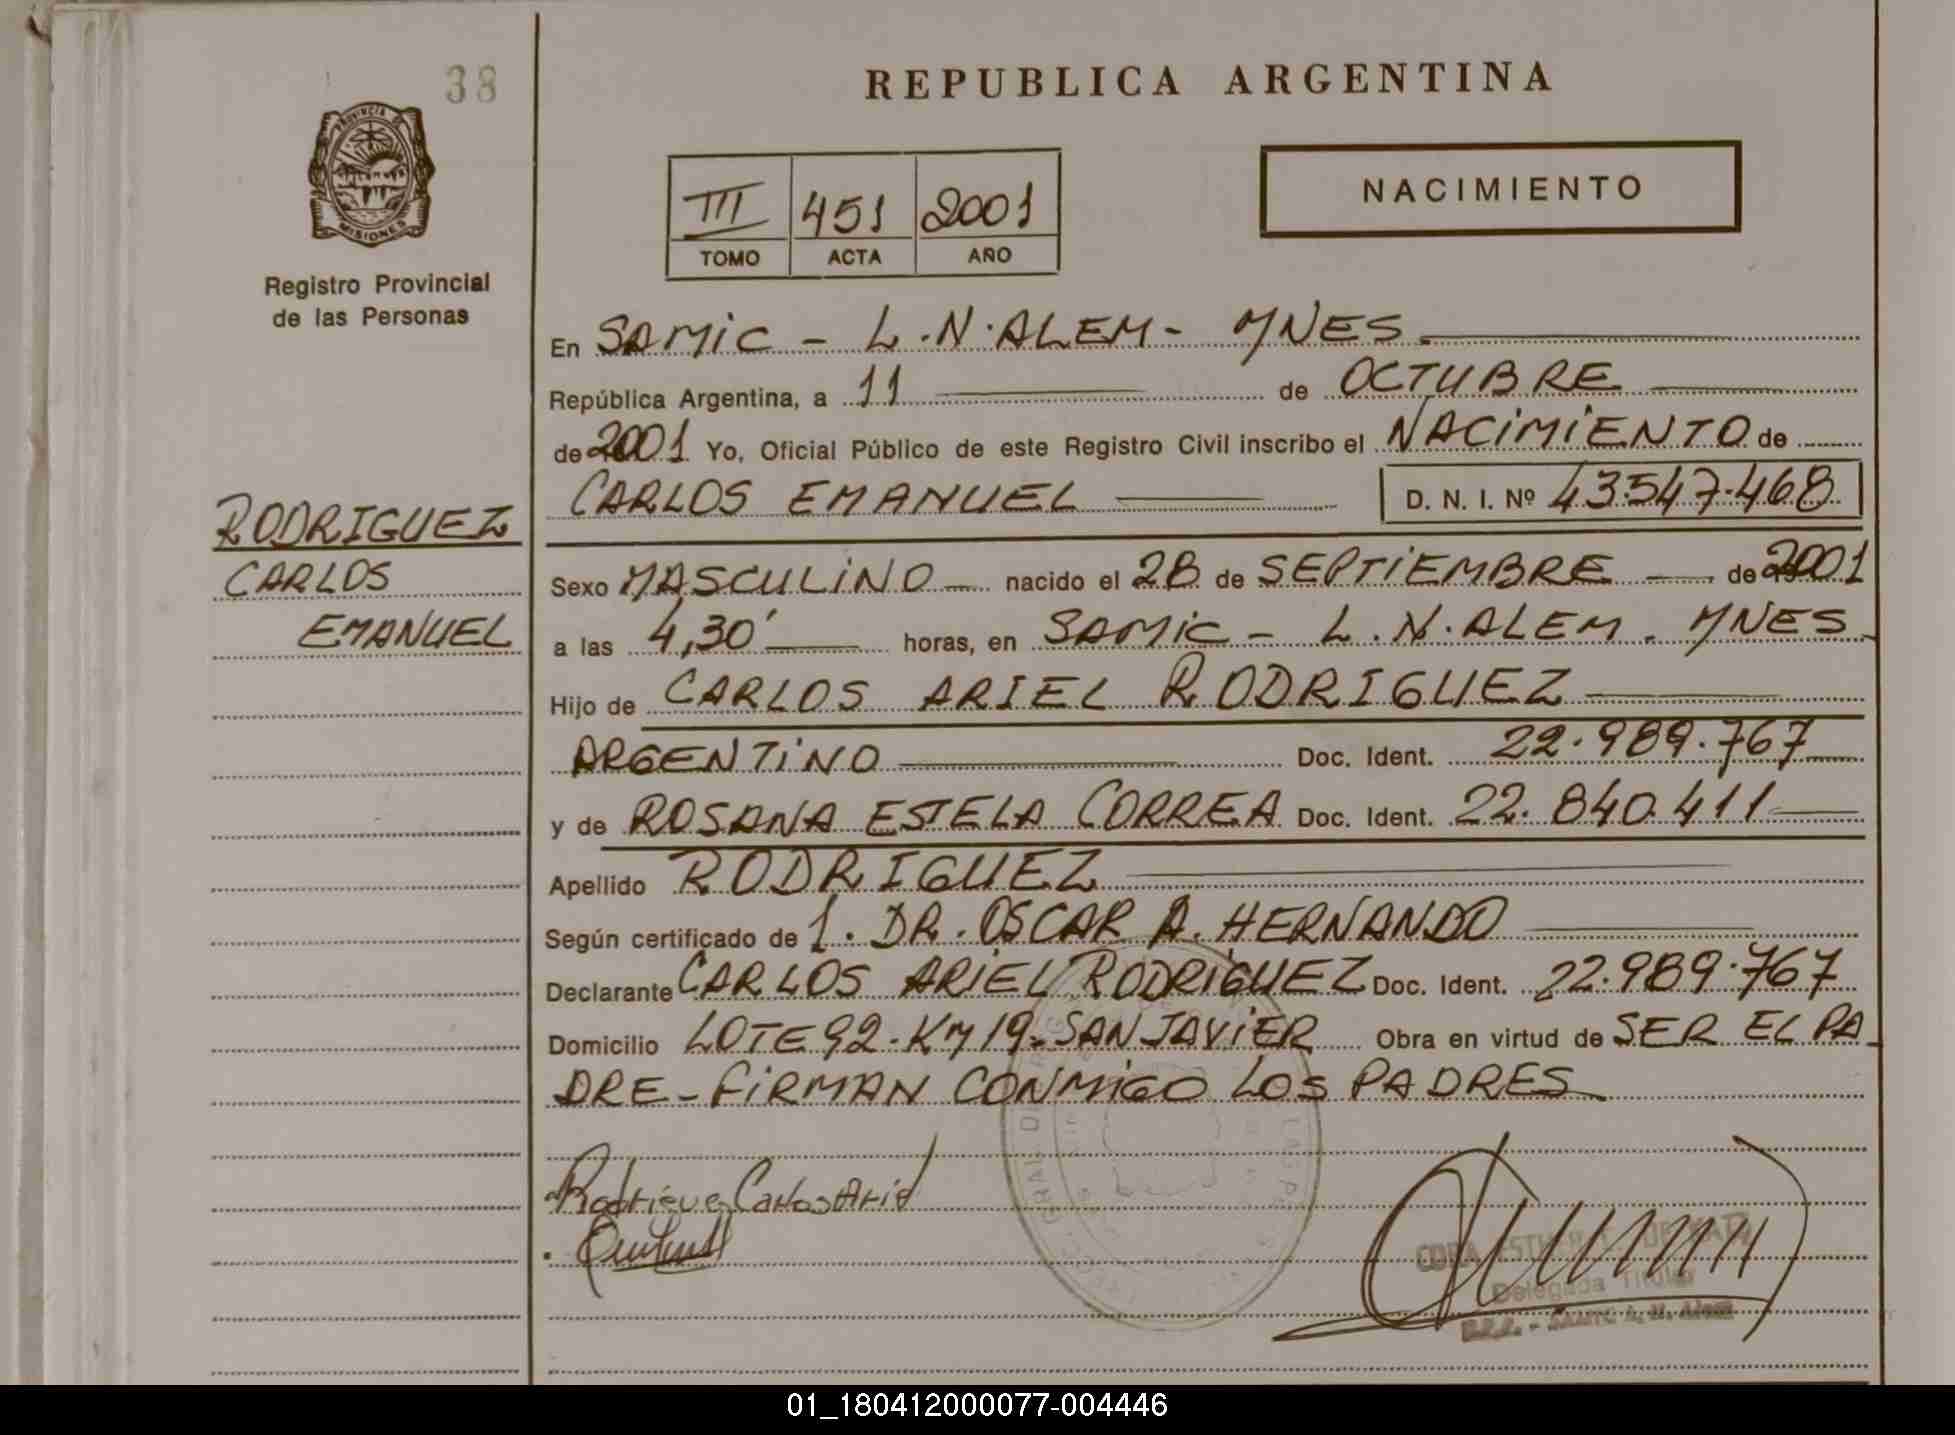 38
REPUBLICA ARGENTINA
PROVINCIA DE
MISIONES
Registro Provincial
de las Personas
III 451 2001
TOMO ACTA AÑO
NACIMIENTO
En SAMIC - L.N. ALEM - MNES.
República Argentina, a 11 de OCTUBRE
de 2001 Yo, Oficial Público de este Registro Civil inscribo el NACIMIENTO de
CARLOS EMANUEL D. N. I. Nº 43.547.468
RODRIGUEZ
CARLOS
EMANUEL
Sexo MASCULINO nacido el 28 de SEPTIEMBRE de 2001
a las 4,30' horas, en SAMIC - L.N. ALEM. MNES
Hijo de CARLOS ARIEL RODRIGUEZ
ARGENTINO Doc. Ident. 22.989.767
y de ROSANA ESTELA CORREA Doc. Ident. 22.840.411
Apellido RODRIGUEZ
Según certificado de 1. DR. OSCAR A. HERNANDO
Declarante CARLOS ARIEL RODRIGUEZ Doc. Ident. 22.989.767
Domicilio LOTE 92 - KM 19 - SAN JAVIER Obra en virtud de SER EL PA
DRE - FIRMAN CONMIGO LOS PADRES
Rodrigue Carlos Ariel
Delegada Titular
01_180412000077-004446